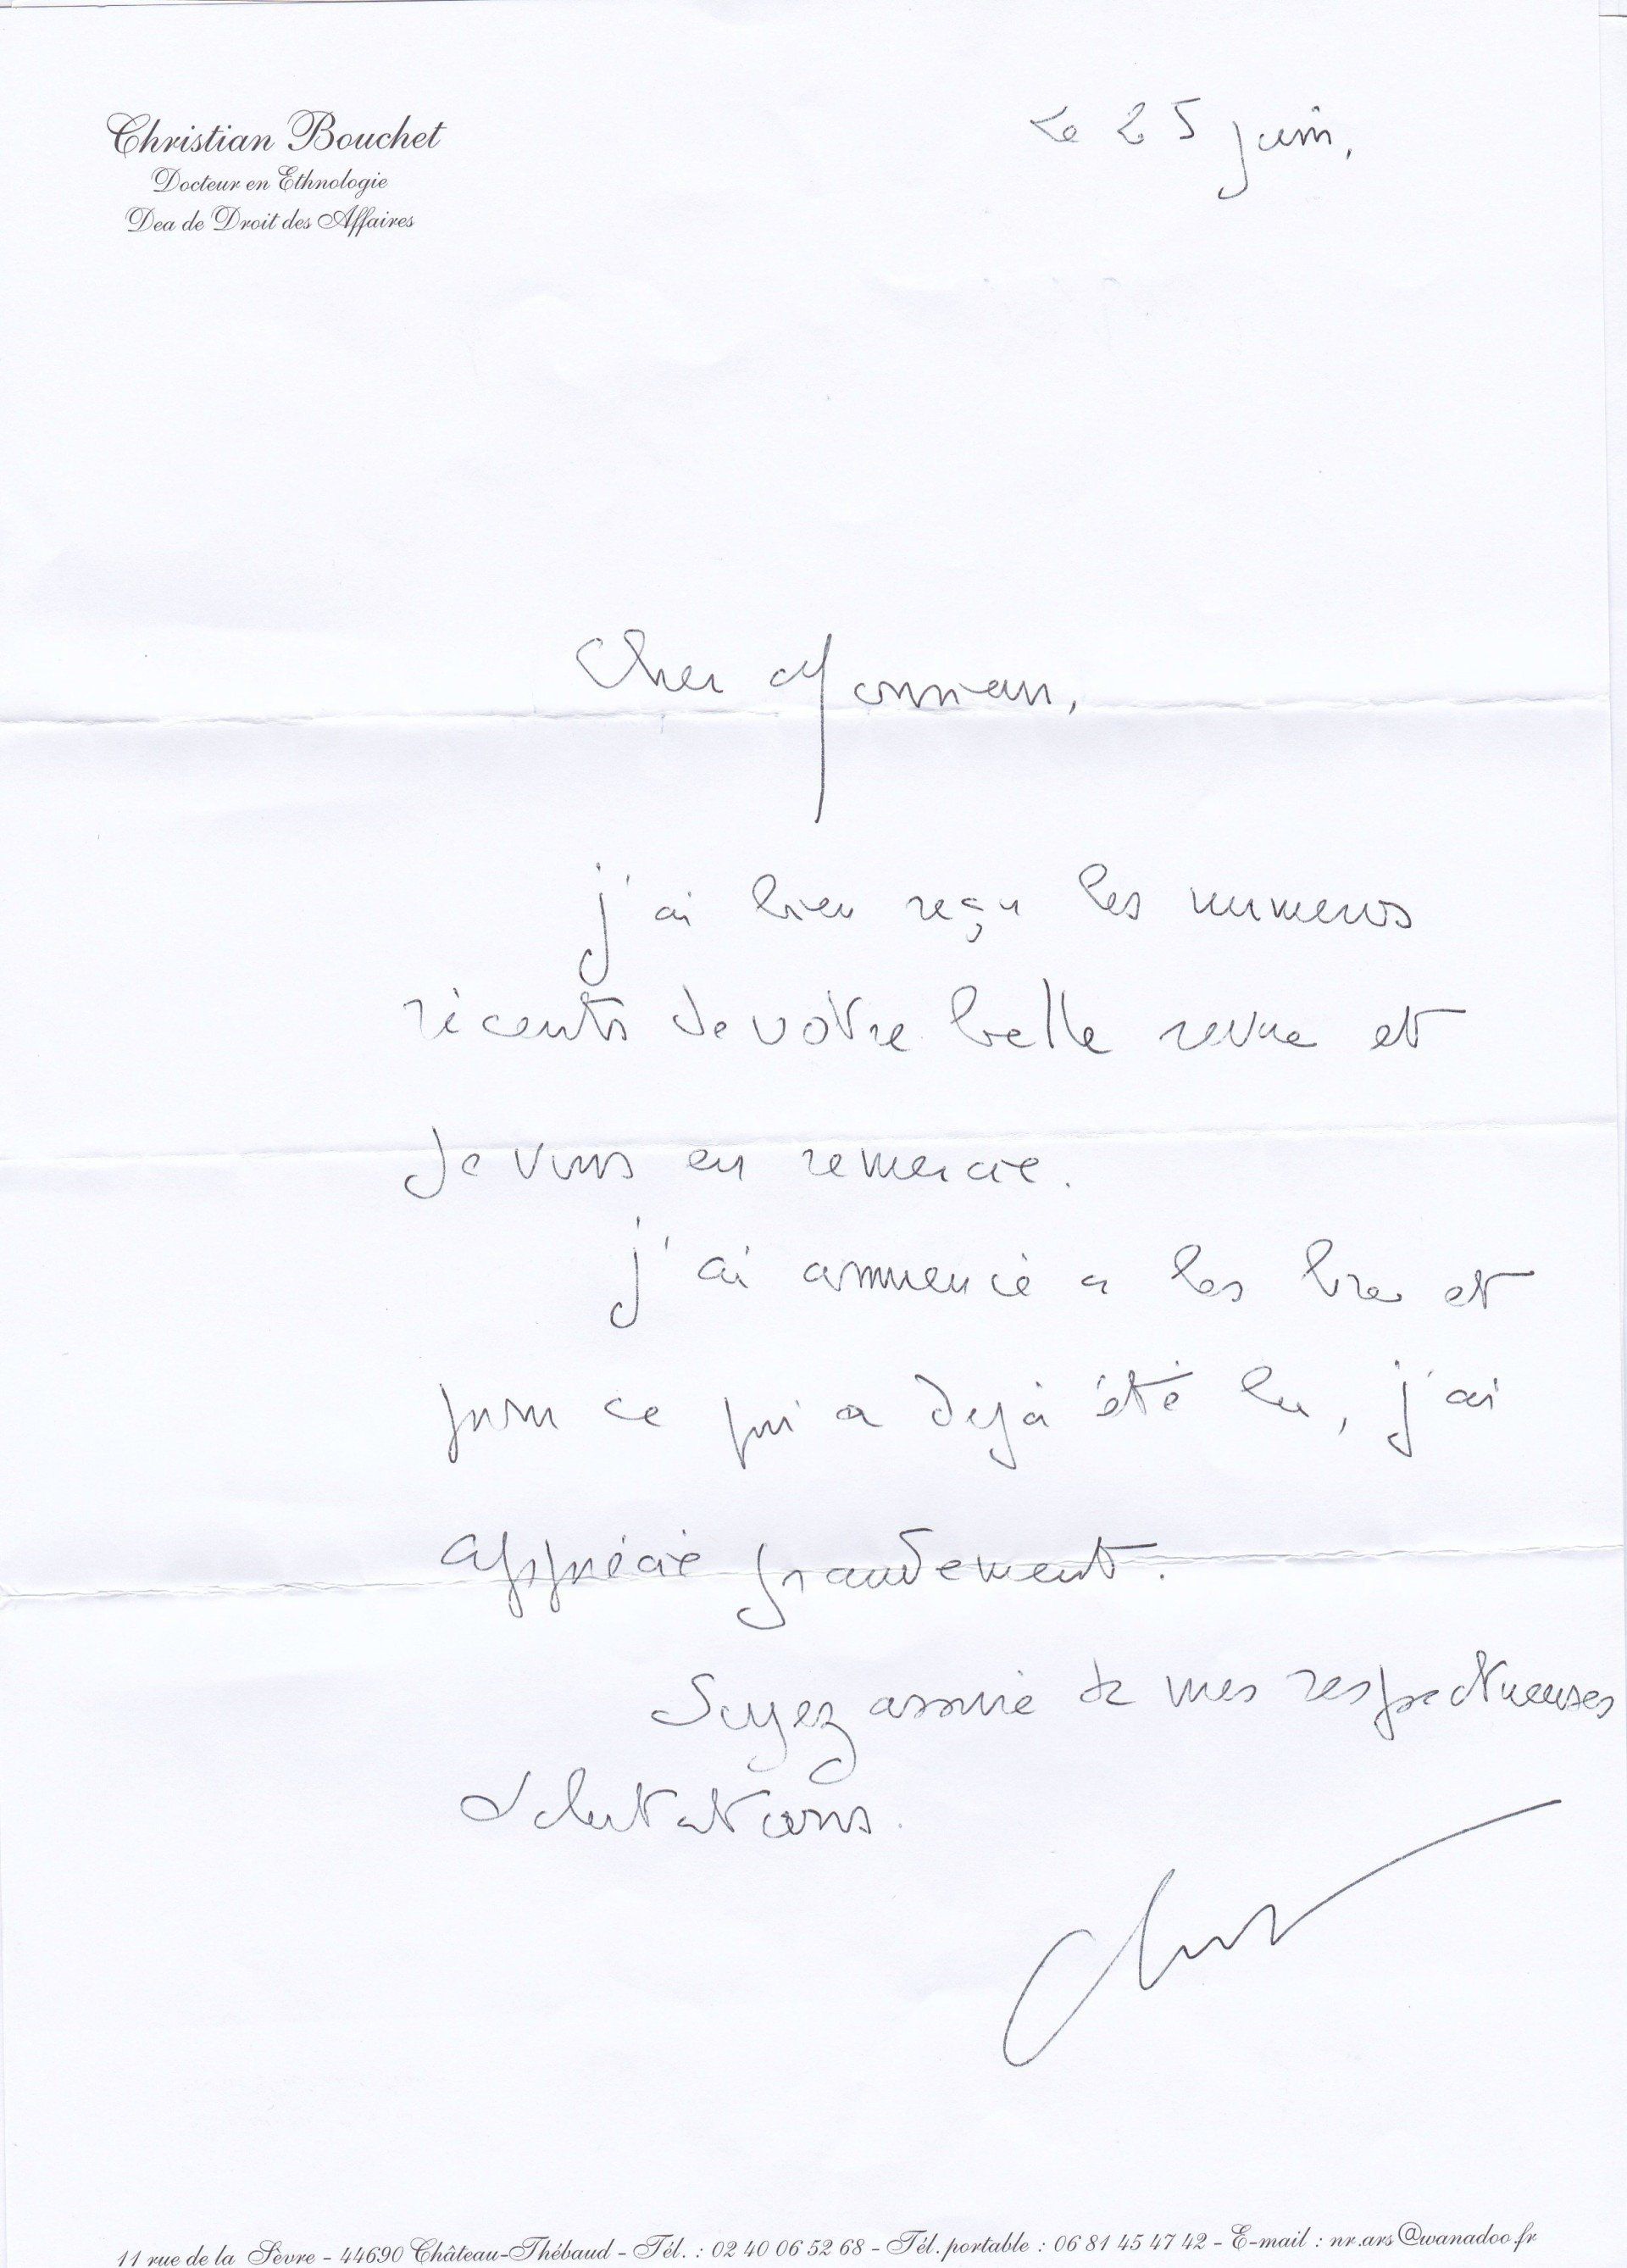 Christian Bouchet
Docteur en Ethnologie
Dea de Droit des Affaires
Le 25 juin,
Cher Monsieur,
j'ai bien reçu les numeros
récents de votre belle revue et
Je vous en remercie.
j'ai commencé a les lire et
pour ce qui a dejà été lu, j'ai
apprécié grandement.
Soyez assuré de mes respectueuses
Salutations.
11 rue de la Sèvre - 44690 Château-Thébaud - Tél. : 02 40 06 52 68 - Tél. portable : 06 81 45 47 42 - E-mail : nr.ars@wanadoo.fr